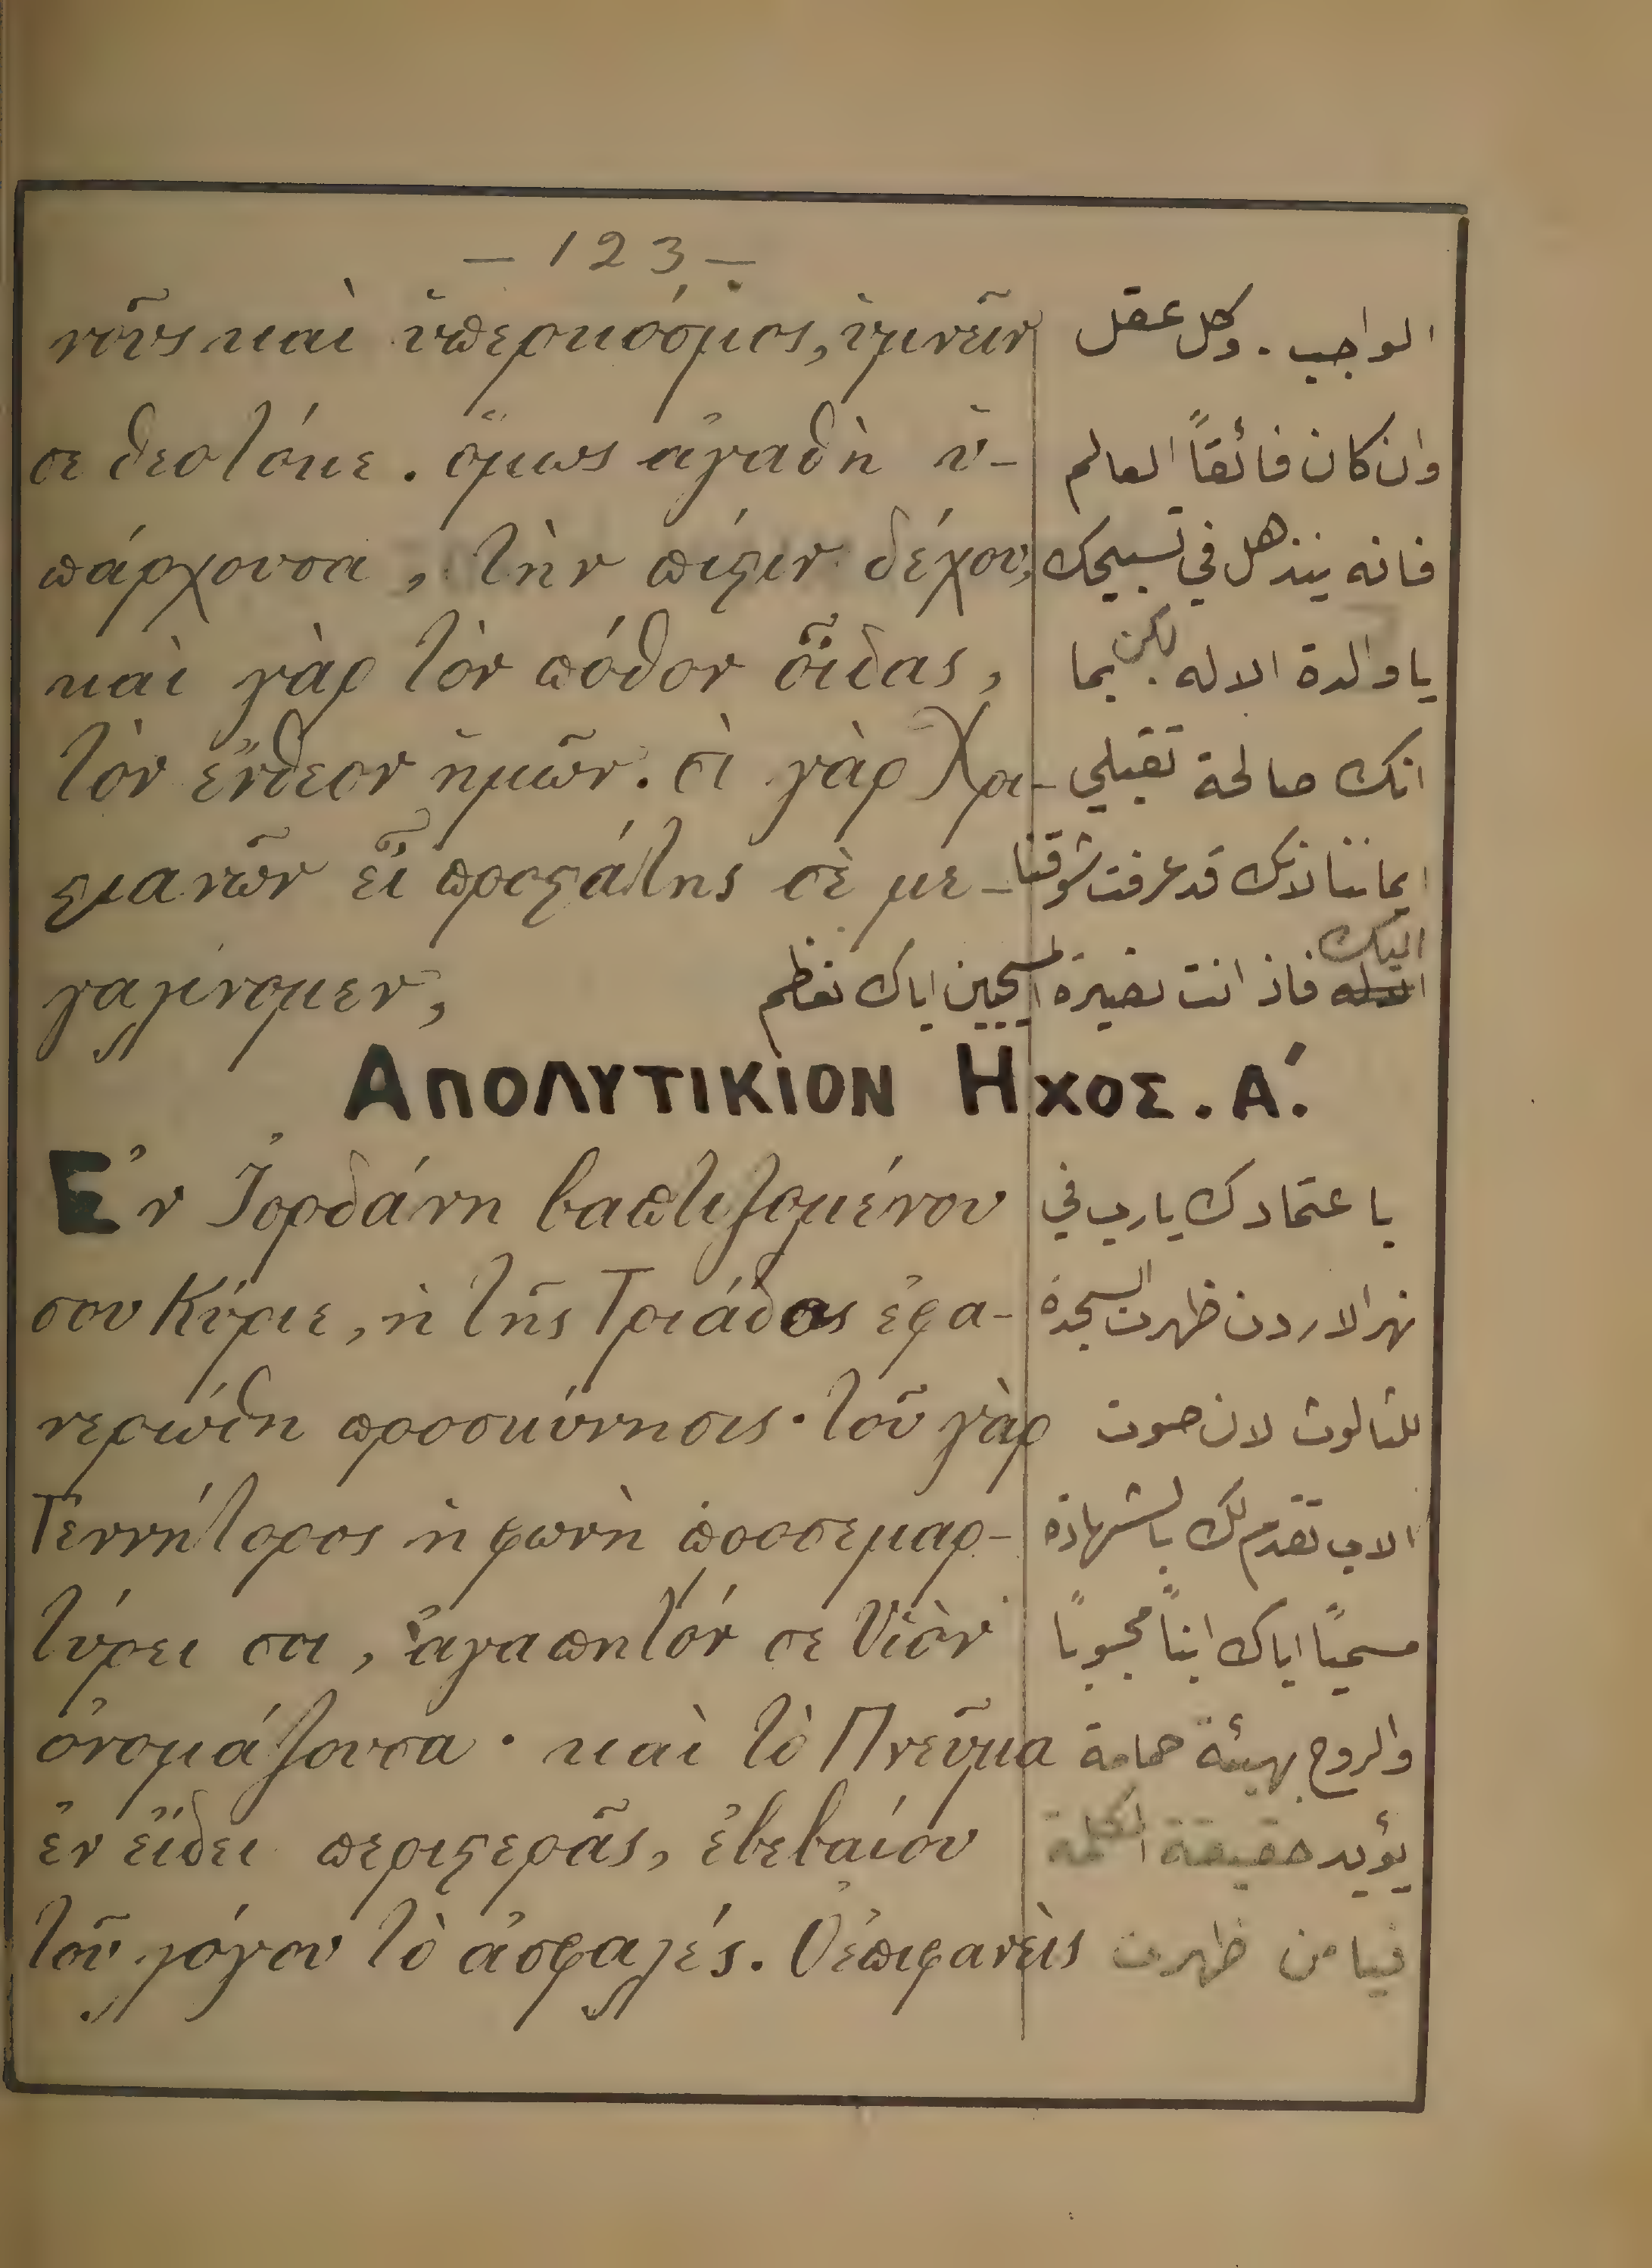 — 123 —
νοῦς καὶ ὑπερκόσμιος, ὑμνεῖν
σε Θεοτόκε. ὅμως ἀγαθὴ ὑ-
πάρχουσα, τὴν πίστιν δέχου,
καὶ γὰρ τὸν πόθον οἶδας,
τὸν ἔνθεον ἡμῶν. σὺ γὰρ Χρι-
στιανῶν εἶ προστάτης σὲ με-
γαλύνομεν,
الواجب . وكل عقل
وان كان فائقاً العالم
فانه ينذهل في تسبيحك
يا والدة الاله . لكن بما
انك صالحة تقبلي
ايماننا لانك قد عرفت شوقنا
اليك
فاذ انت نصيرة المسيحيين اياك نعظم
ΑΠΟΛΥΤΙΚΙΟΝ ΗΧΟΣ. Α΄.
Ἐν Ἰορδάνῃ βαπτιζομένου
σου Κύριε, ἡ τῆς Τριάδος ἐφα-
νερώθη προσκύνησις· τοῦ γὰρ
Γεννήτορος ἡ φωνὴ προσεμαρ-
τύρει σοι, ἀγαπητόν σε Υἱὸν
ὀνομάζουσα· καὶ τὸ Πνεῦμα
ἐν εἴδει περιστερᾶς, ἐβεβαίου
τοῦ λόγου τὸ ἀσφαλές. Ὁ ἐπιφανεὶς
باعتمادك يا رب في
نهر الاردن ظهرت السجدة
للثالوث لان صوت
الاب تقدم لك بالشهادة
مسمياً اياك ابناً محبوباً
والروح بهيئة حمامة
يؤيد حقيقة الكلمة
فيا من ظهرت